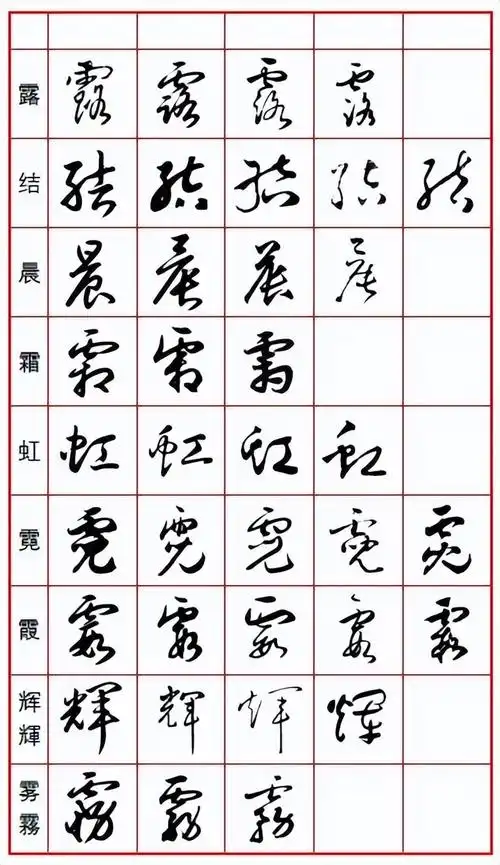 露 露 露 露 露
结 结 结 结 结 结
晨 晨 晨 晨 晨
霜 霜 霜 霜
虹 虹 虹 虹 虹
霓 霓 霓 霓 霓 霓
霞 霞 霞 霞 霞 霞
辉 輝 輝 輝 輝 輝
雾 霧 霧 霧 霧